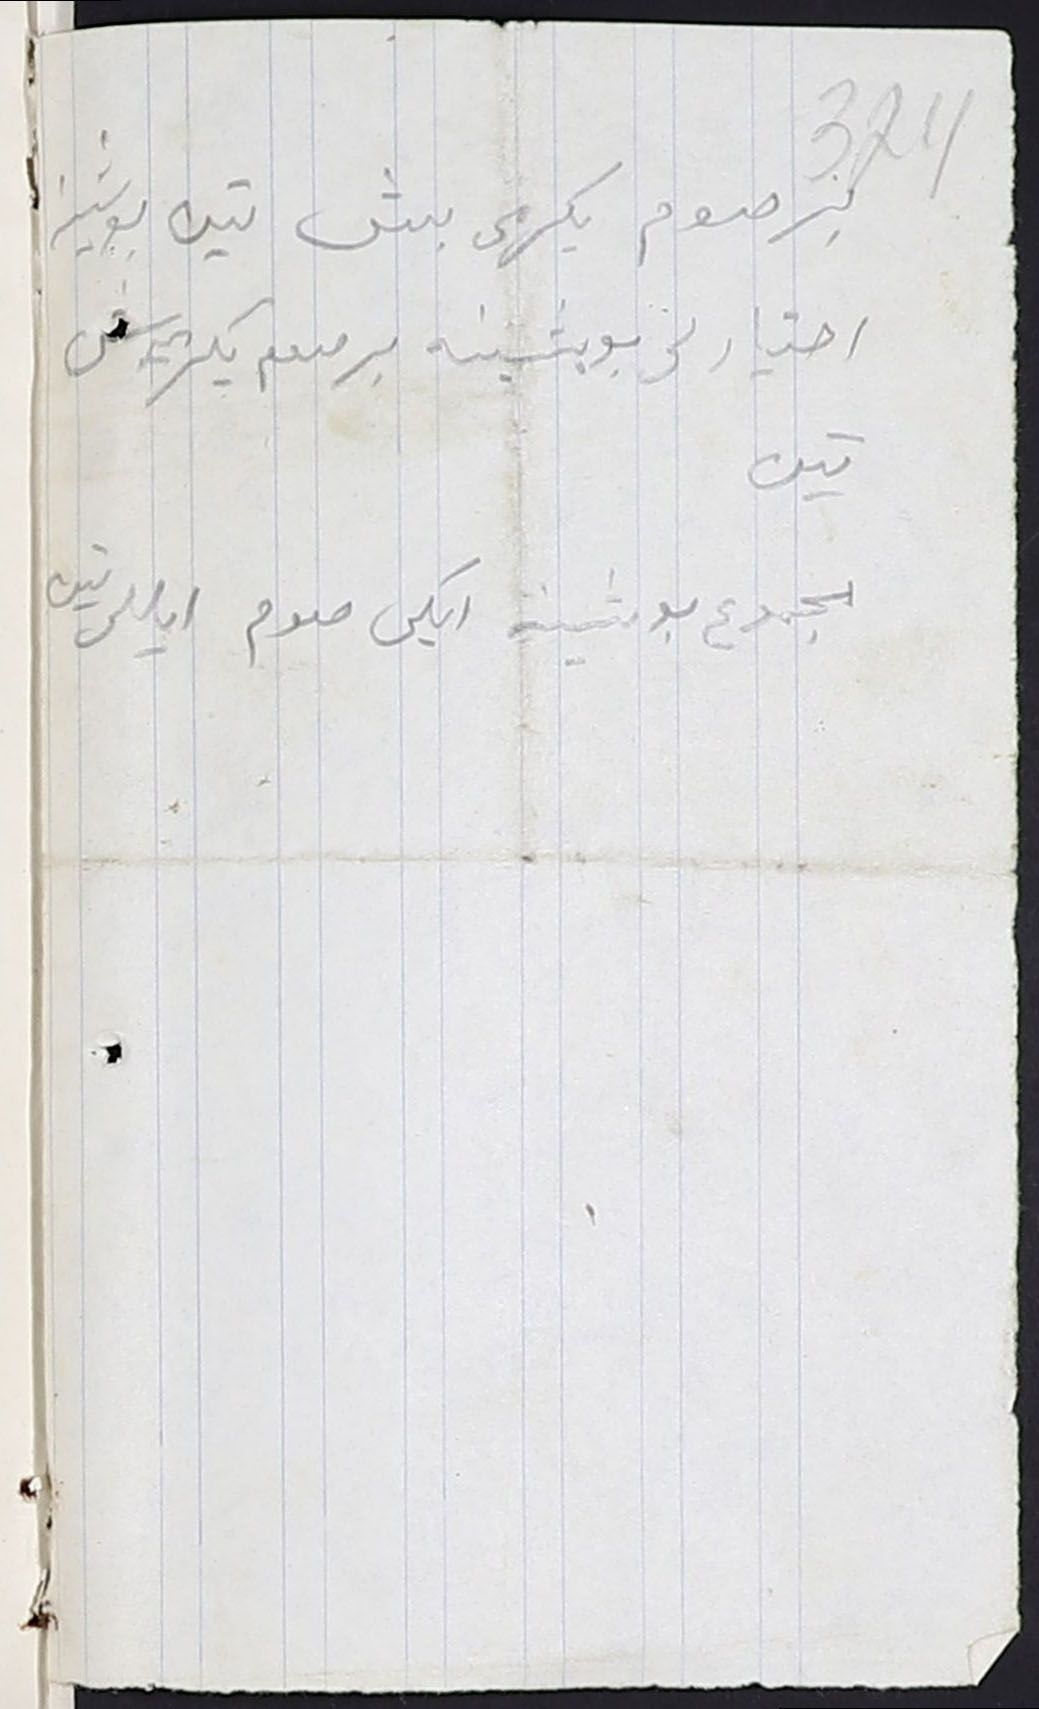 324
بر صوم یکرمی بیش تین بوشینه
اختیارنی بوشینه بر صوم یکرمی بیش
تین
المجموع بوشینه ایکی صوم ایللی تین